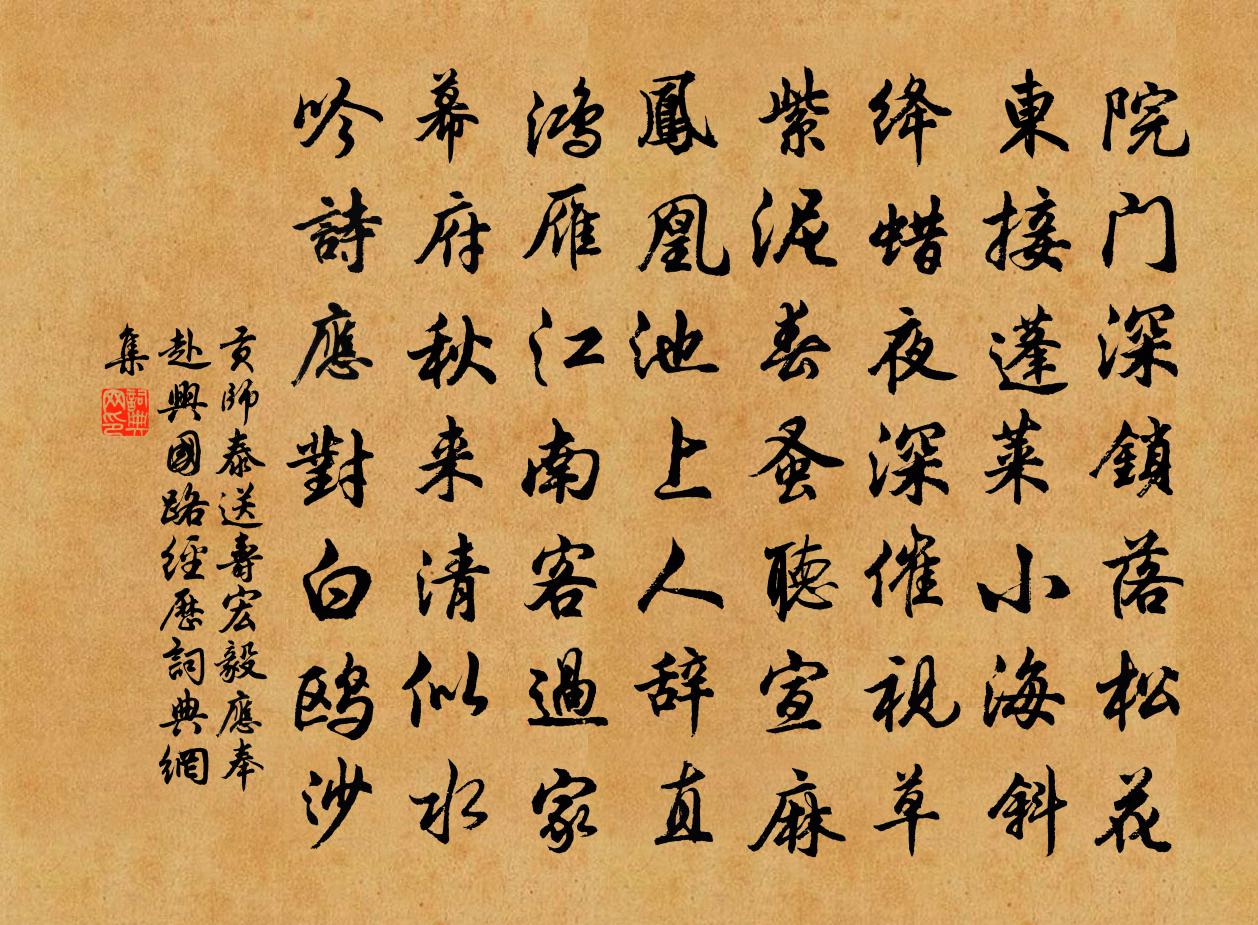 院门深鎖落松花
東接蓬莱小海斜
绛蜡夜深催視草
紫泥春蚤聽宣麻
鳳凰池上人辞直
鴻雁江南客過家
幕府秋来清似水
吟詩應對白鸥沙
贡師泰送壽宏毅應奉
赴興國路經歷詞典網
集
詞典网印